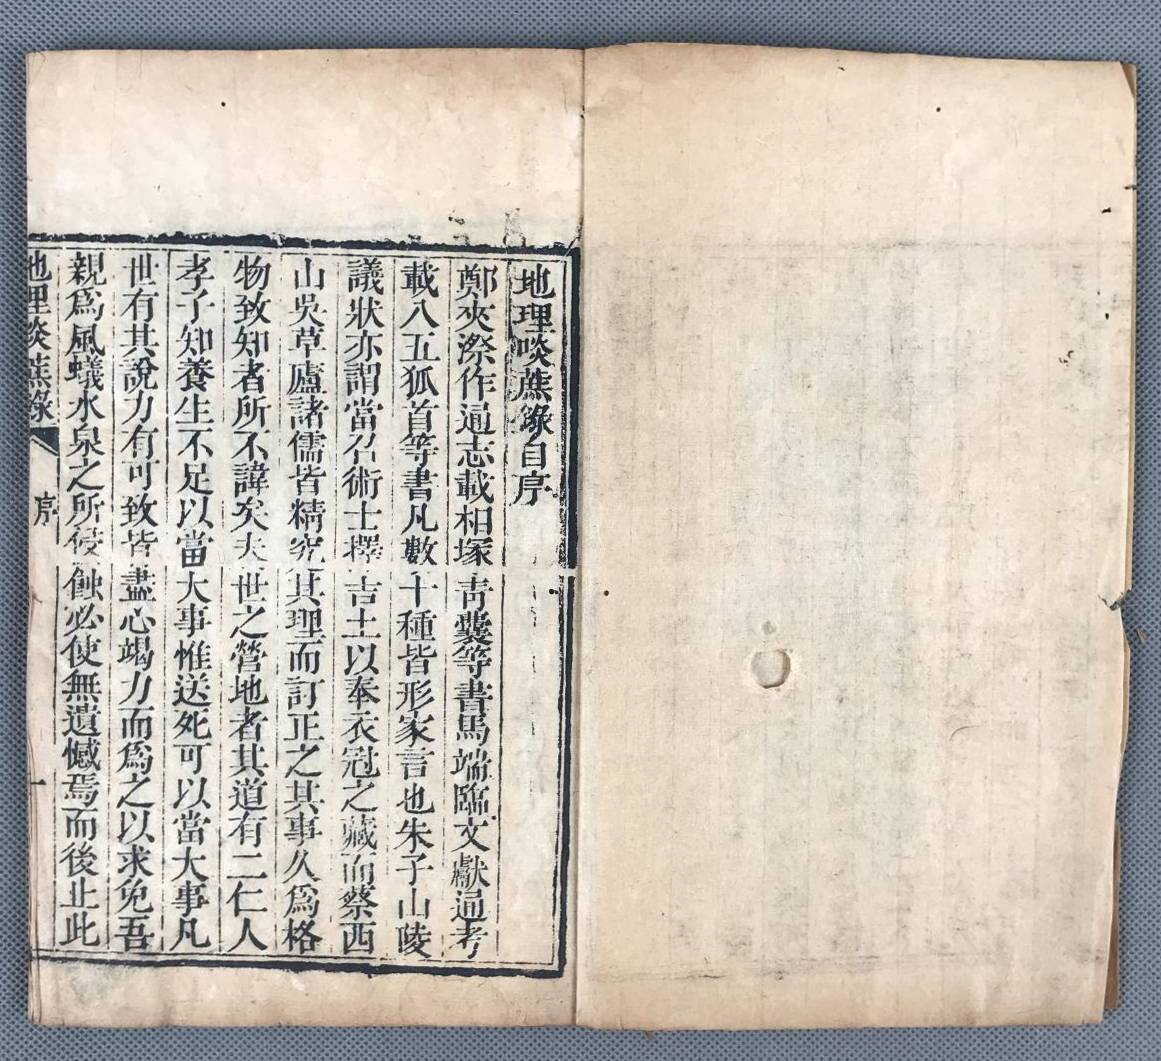 地理啖蔗錄自序
鄭夾漈作通志載相塚青囊等書馬端臨文獻通考
載八五狐首等書凡數十種皆形家言也朱子山陵
議狀亦謂當召術士擇吉土以奉衣冠之藏而蔡西
山吳草廬諸儒皆精究其理而訂正之其事久爲格
物致知者所不諱矣夫世之營地者其道有二仁人
孝子知養生不足以當大事惟送死可以當大事凡
世有其說力有可致皆盡心竭力而爲之以求免吾
親爲風蟻水泉之所侵蝕必使無遺憾焉而後止此
地理啖蔗錄 序 一